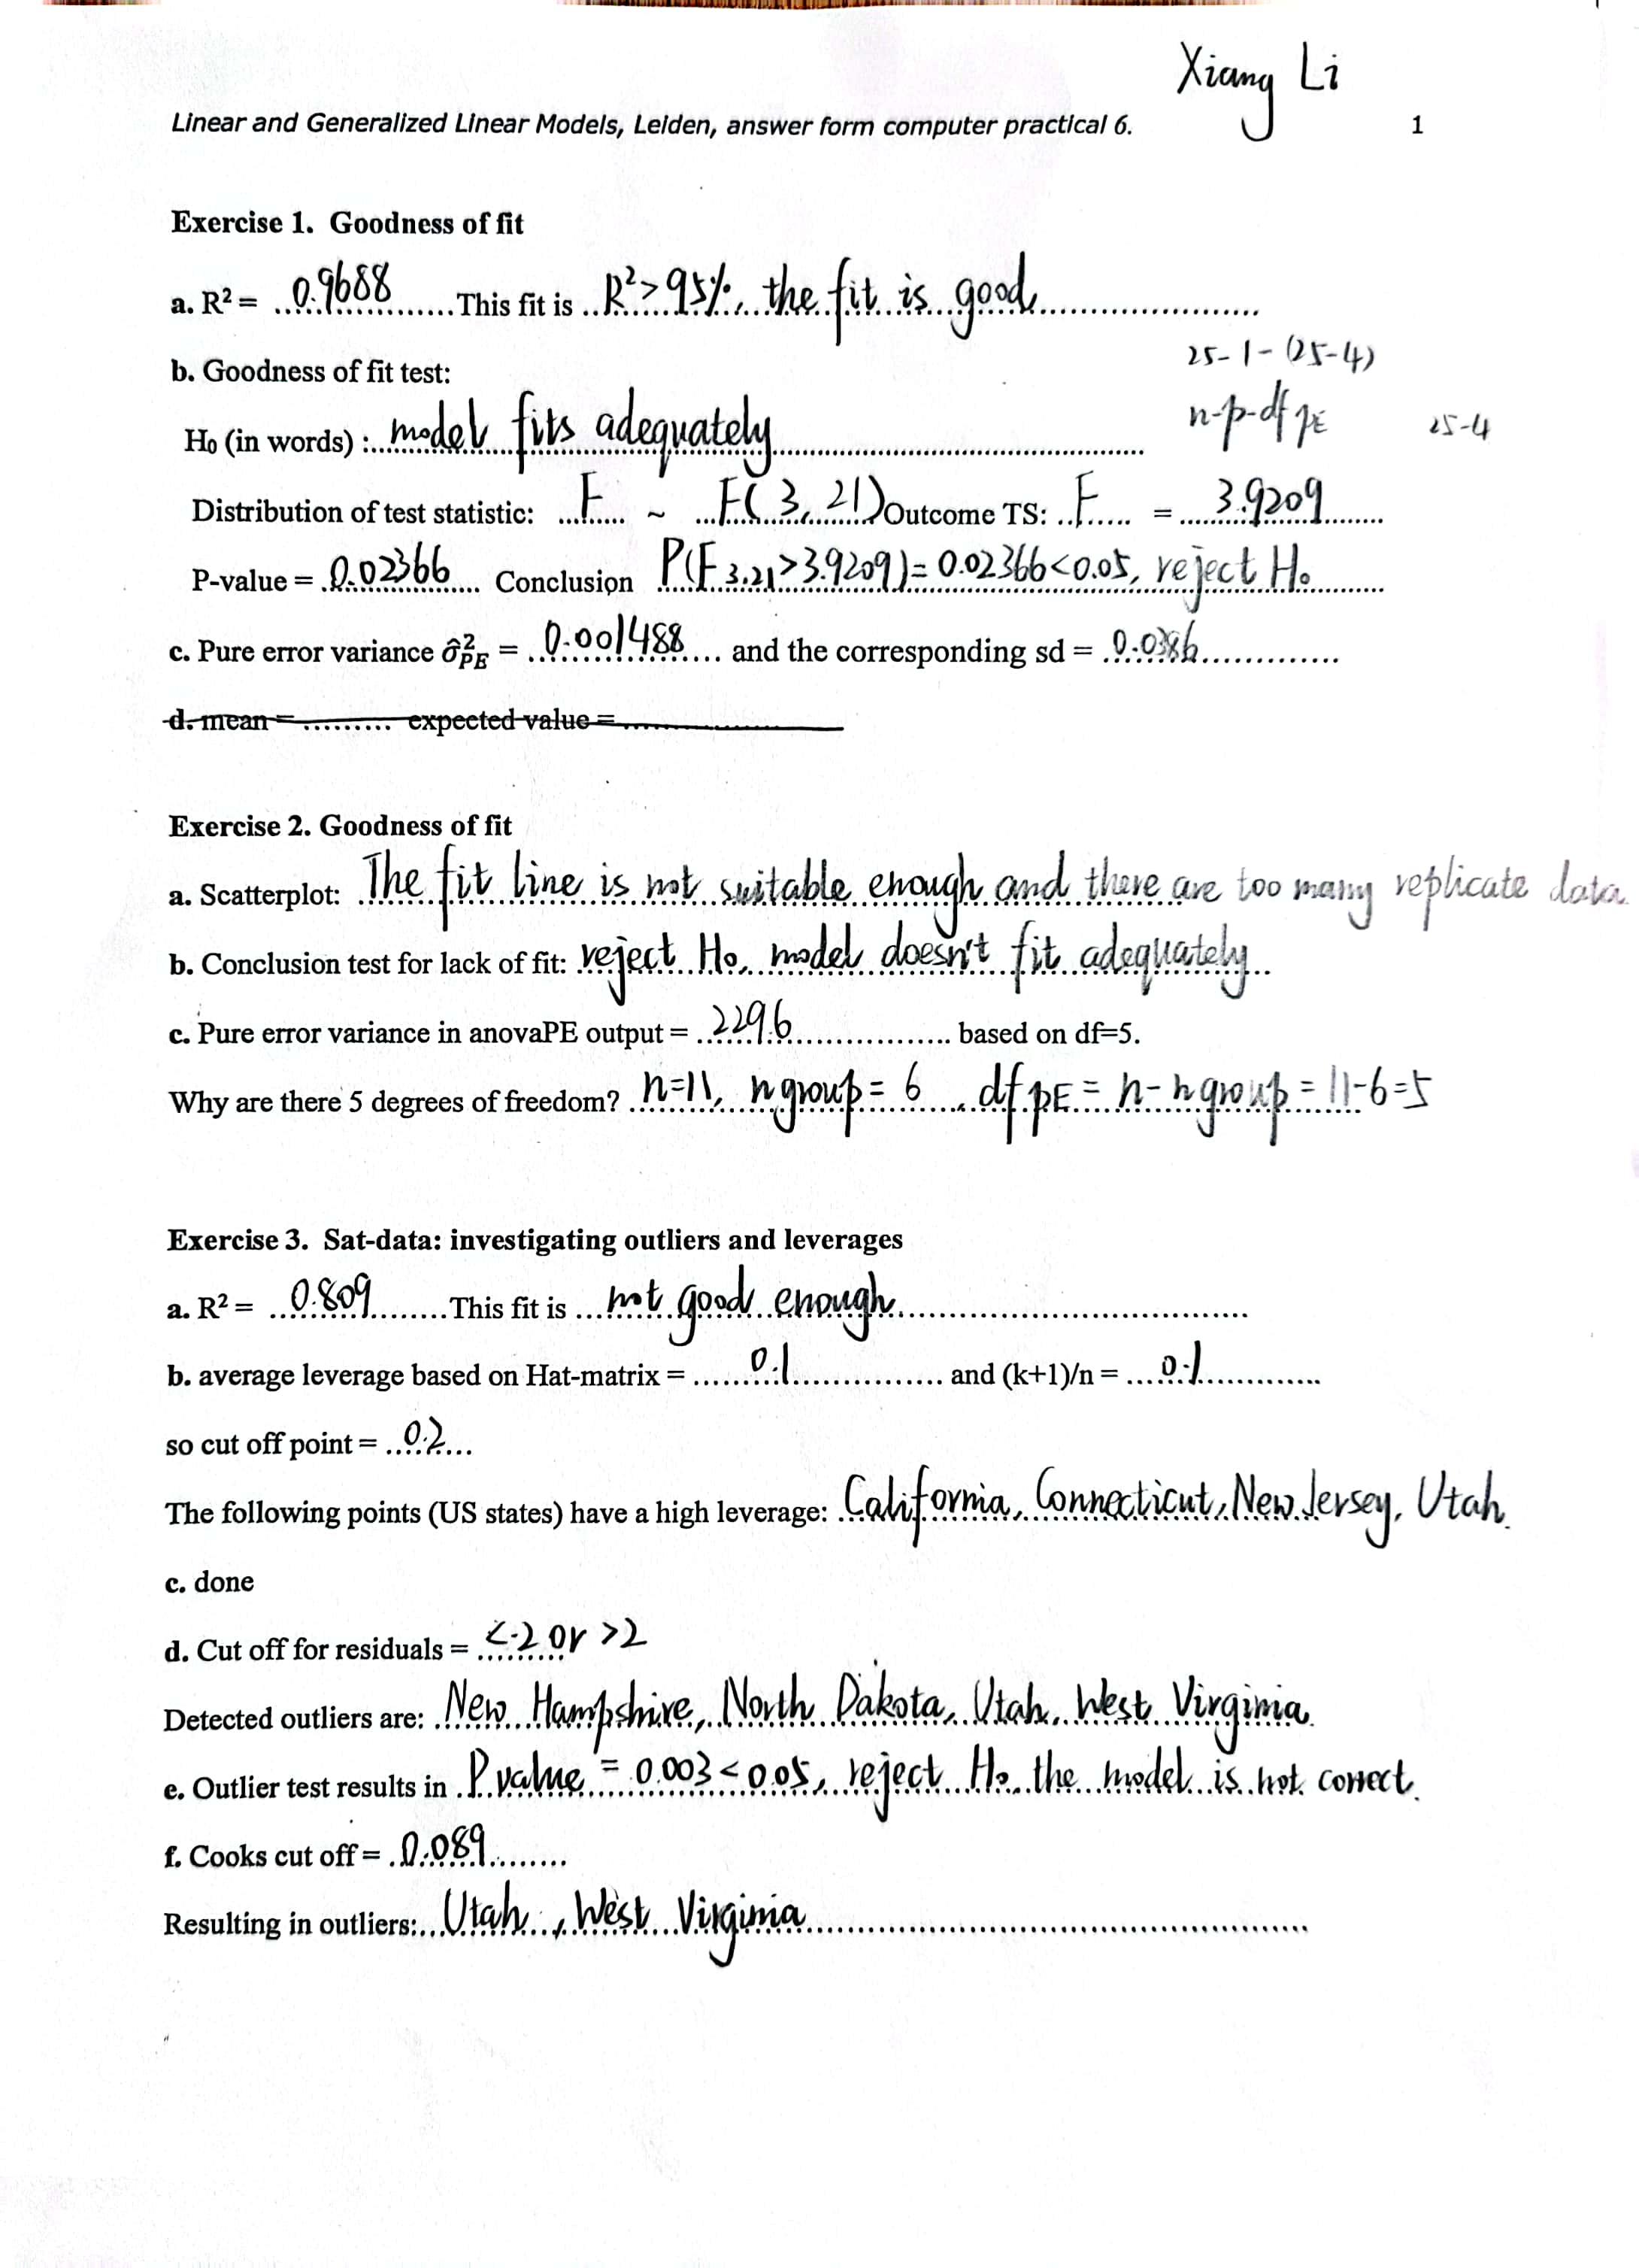 Xiang Li
Linear and Generalized Linear Models, Leiden, answer form computer practical 6. 1
Exercise 1. Goodness of fit
a. R² = 0.9688 This fit is R²>95%, the fit is good
25-1-(25-4)
b. Goodness of fit test:
n-p-df PE 25-4
H₀ (in words) : model fits adequately
Distribution of test statistic: F ~ F(3, 21) Outcome TS: F = 3.9209
P-value = 0.02366 Conclusion P(F 3.21>3.9209)= 0.02366<0.05, reject H₀
c. Pure error variance σ̂²PE = 0.001488 and the corresponding sd = 0.0386
d. mean = ......... expected value =
Exercise 2. Goodness of fit
a. Scatterplot: The fit line is not suitable enough and there are too many replicate data.
b. Conclusion test for lack of fit: reject H₀, model doesn't fit adequately
c. Pure error variance in anovaPE output = 229.6 based on df=5.
Why are there 5 degrees of freedom? n=11, n group = 6, df PE = n - n group = 11-6=5
Exercise 3. Sat-data: investigating outliers and leverages
a. R² = 0.809 This fit is not good enough
b. average leverage based on Hat-matrix = 0.1 and (k+1)/n = 0.1
so cut off point = 0.2
The following points (US states) have a high leverage: California, Connecticut, New Jersey, Utah.
c. done
d. Cut off for residuals = <-2 or >2
Detected outliers are: New Hampshire, North Dakota, Utah, West Virginia.
e. Outlier test results in P value = 0.003 < 0.05, reject H₀ the model is not correct.
f. Cooks cut off = 0.089
Resulting in outliers: Utah, West Virginia